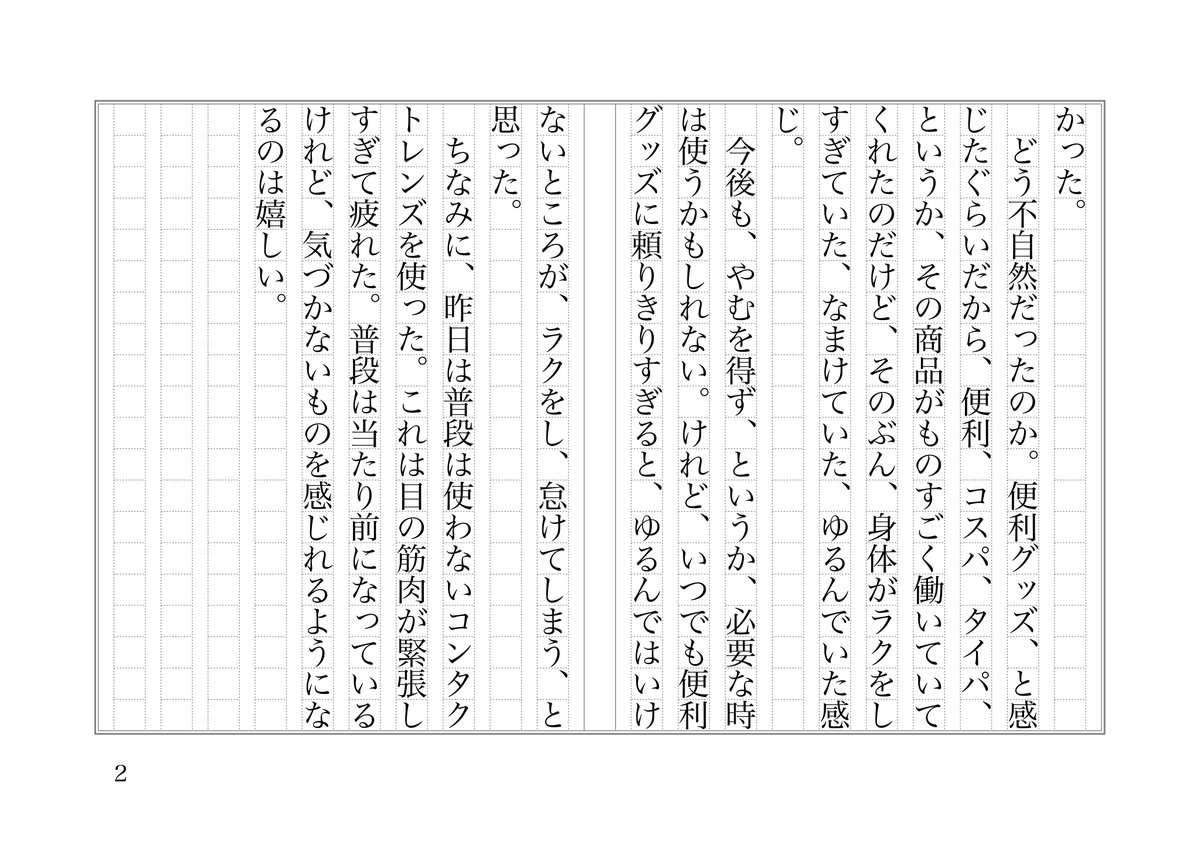 かった。
　どう不自然だったのか。便利グッズ、と感
じたぐらいだから、便利、コスパ、タイパ、
というか、その商品がものすごく働いていて
くれたのだけど、そのぶん、身体がラクをし
すぎていた、なまけていた、ゆるんでいた感
じ。
　今後も、やむを得ず、というか、必要な時
は使うかもしれない。けれど、いつでも便利
グッズに頼りきりすぎると、ゆるんではいけ
ないところが、ラクをし、怠けてしまう、と
思った。
　ちなみに、昨日は普段は使わないコンタク
トレンズを使った。これは目の筋肉が緊張し
すぎて疲れた。普段は当たり前になっている
けれど、気づかないものを感じれるようにな
るのは嬉しい。
2